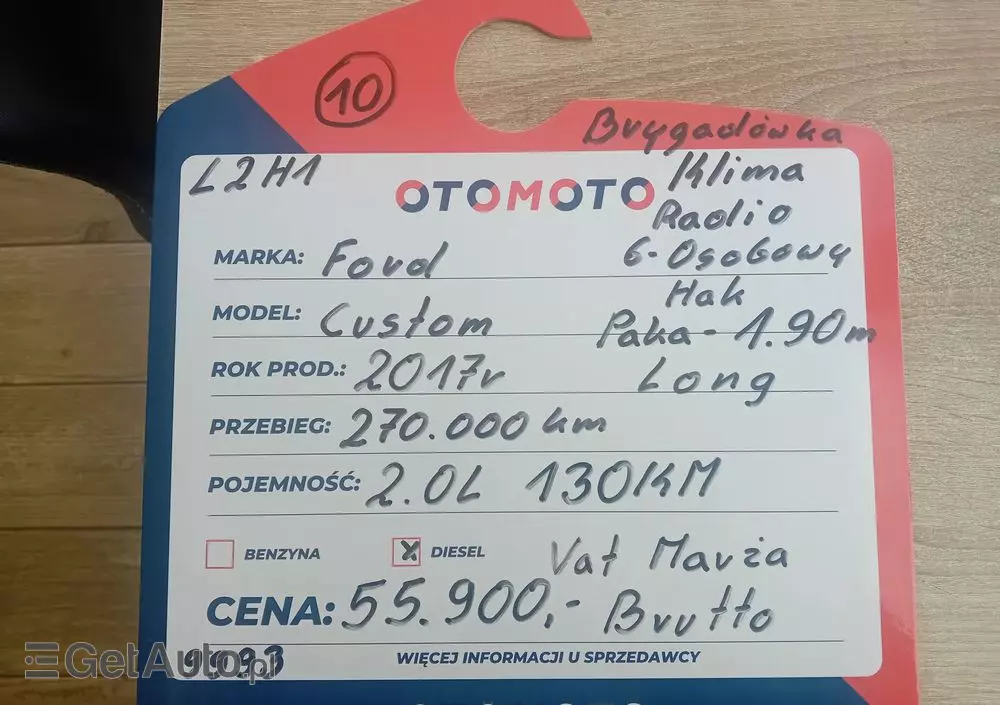 10
Brygadówka
L2H1
OTOMOTO
Klima
Radio
MARKA: Ford
6-Osobowy
Hak
MODEL: Custom
Paka - 1.90m
ROK PROD.: 2017r
Long
PRZEBIEG: 270.000 km
POJEMNOŚĆ: 2.0L 130KM
BENZYNA
X DIESEL
Vat Marża
CENA: 55.900,- Brutto
WIĘCEJ INFORMACJI U SPRZEDAWCY
GetAuto.pl